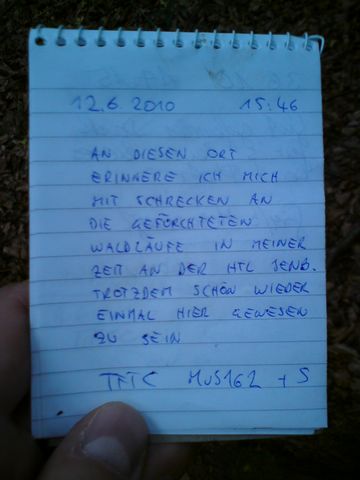 12.6.2010 15:46
AN DIESEN ORT
ERINNERE ICH MICH
MIT SCHRECKEN AN
DIE GEFÜRCHTETEN
WALDLÄUFE IN MEINER
ZEIT AN DER HTL SENB.
TROTZDEM SCHÖN WIEDER
EINMAL HIER GEWESEN
ZU SEIN
TFTC MUS162 + S